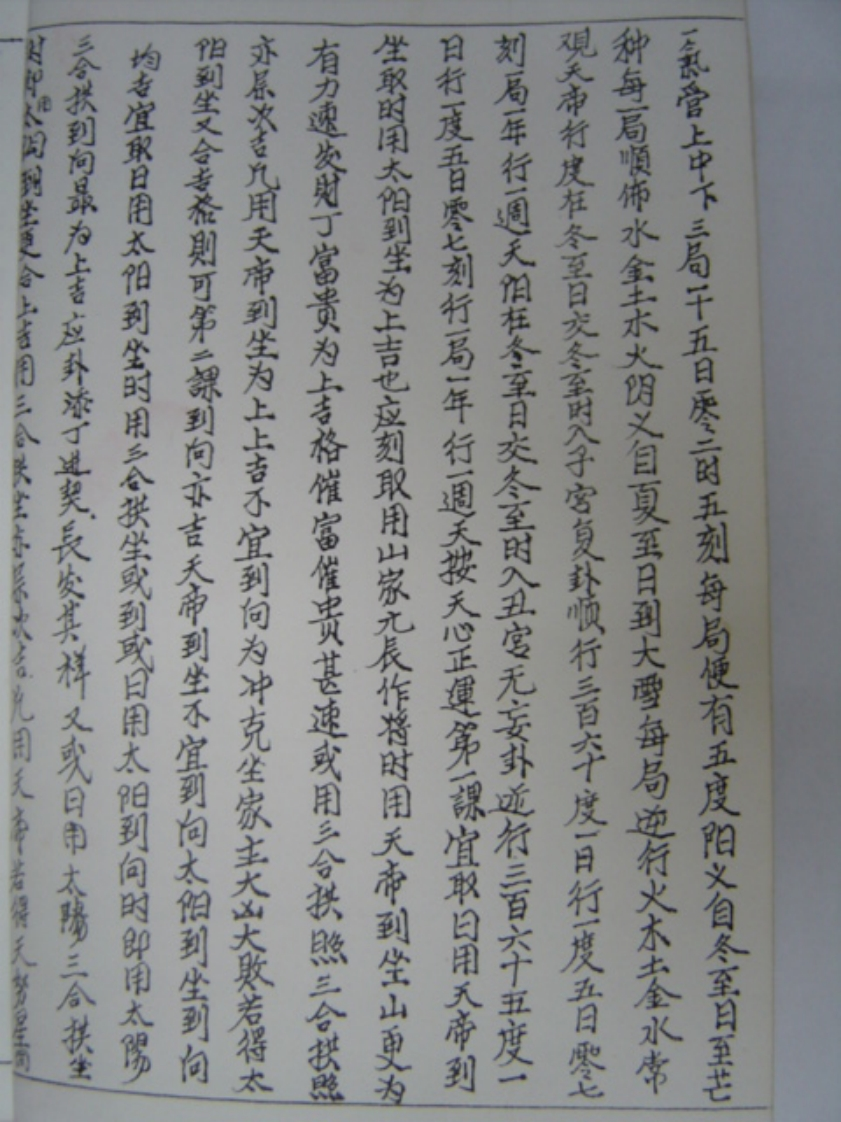 一氣管上中下三局一十五日零二时五刻每局便有五度阳义自冬至日至芒
种每一局順佈水金土木火阴义自夏至日到大雪每局逆行火木土金水常
观天帝行度在冬至日交冬至时入子宫复卦顺行三百六十度一日行一度五日零七
刻一局一年行一週天阳在冬至日交冬至时入丑宫无妄卦逆行三百六十五度一
日行一度五日零七刻行一局一年行一週天按天心正運第一課宜取日用天帝到
坐取时用太阳到坐为上吉也应刻取用山家亢長作将时用天帝到坐山更为
有力速发財丁富貴为上吉格催富催貴甚速或用三合拱照三合拱照
亦属次吉凡用天帝到坐为上上吉不宜到向为冲克坐家主大凶大敗若得太
阳到坐又合吉格則可第二課到向亦吉天帝到坐不宜到向太阳到坐到向
均吉宜取日用太阳到坐时用三合拱坐或到或日用太阳到向时即用太陽
三合拱到向最为上吉应卦添丁进契長发其样又或日用太陽三合拱坐
时即用太阳到坐更合上吉用三合拱坐亦属次吉凡用天帝若得天